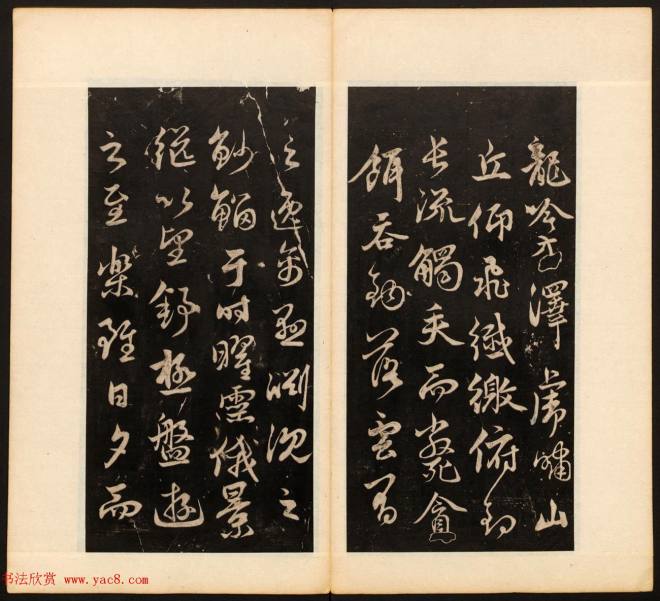 龍吟方澤虎嘯山
丘仰飛纖繳俯釣
長流觸矢而斃貪
餌吞鉤落雲間
之逸禽懸淵沉之
魦鰡于時曜靈俄景
繼以望舒極盤遊
之至樂雖日夕而
书法欣赏 www.yac8.com